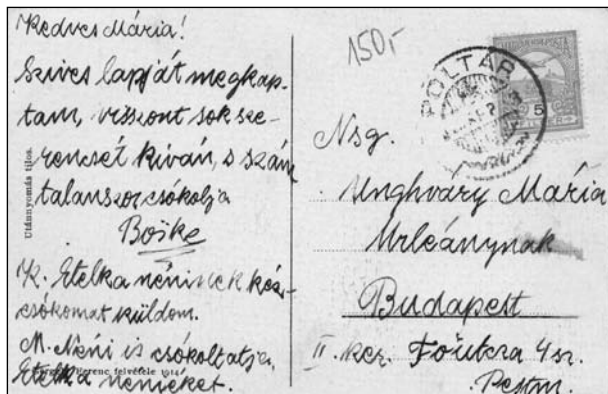 Kedves Mária!
Szives lapját megkap-
tam, viszont sok sze-
rencsét kiván, s szám
talanszor csókolja
Böske
K. Etelka néninek kéz-
csókomat küldöm.
M. Néni is csókoltatja
Etelka néniéket.
Utánnyomás tilos.
Ferenc felvétele 1914
150,-
POLTÁR
5
Nsg.
Unghváry Mária
Urleánynak
Budapest
II. ker. Főutcza 4 sz.
Pestm.